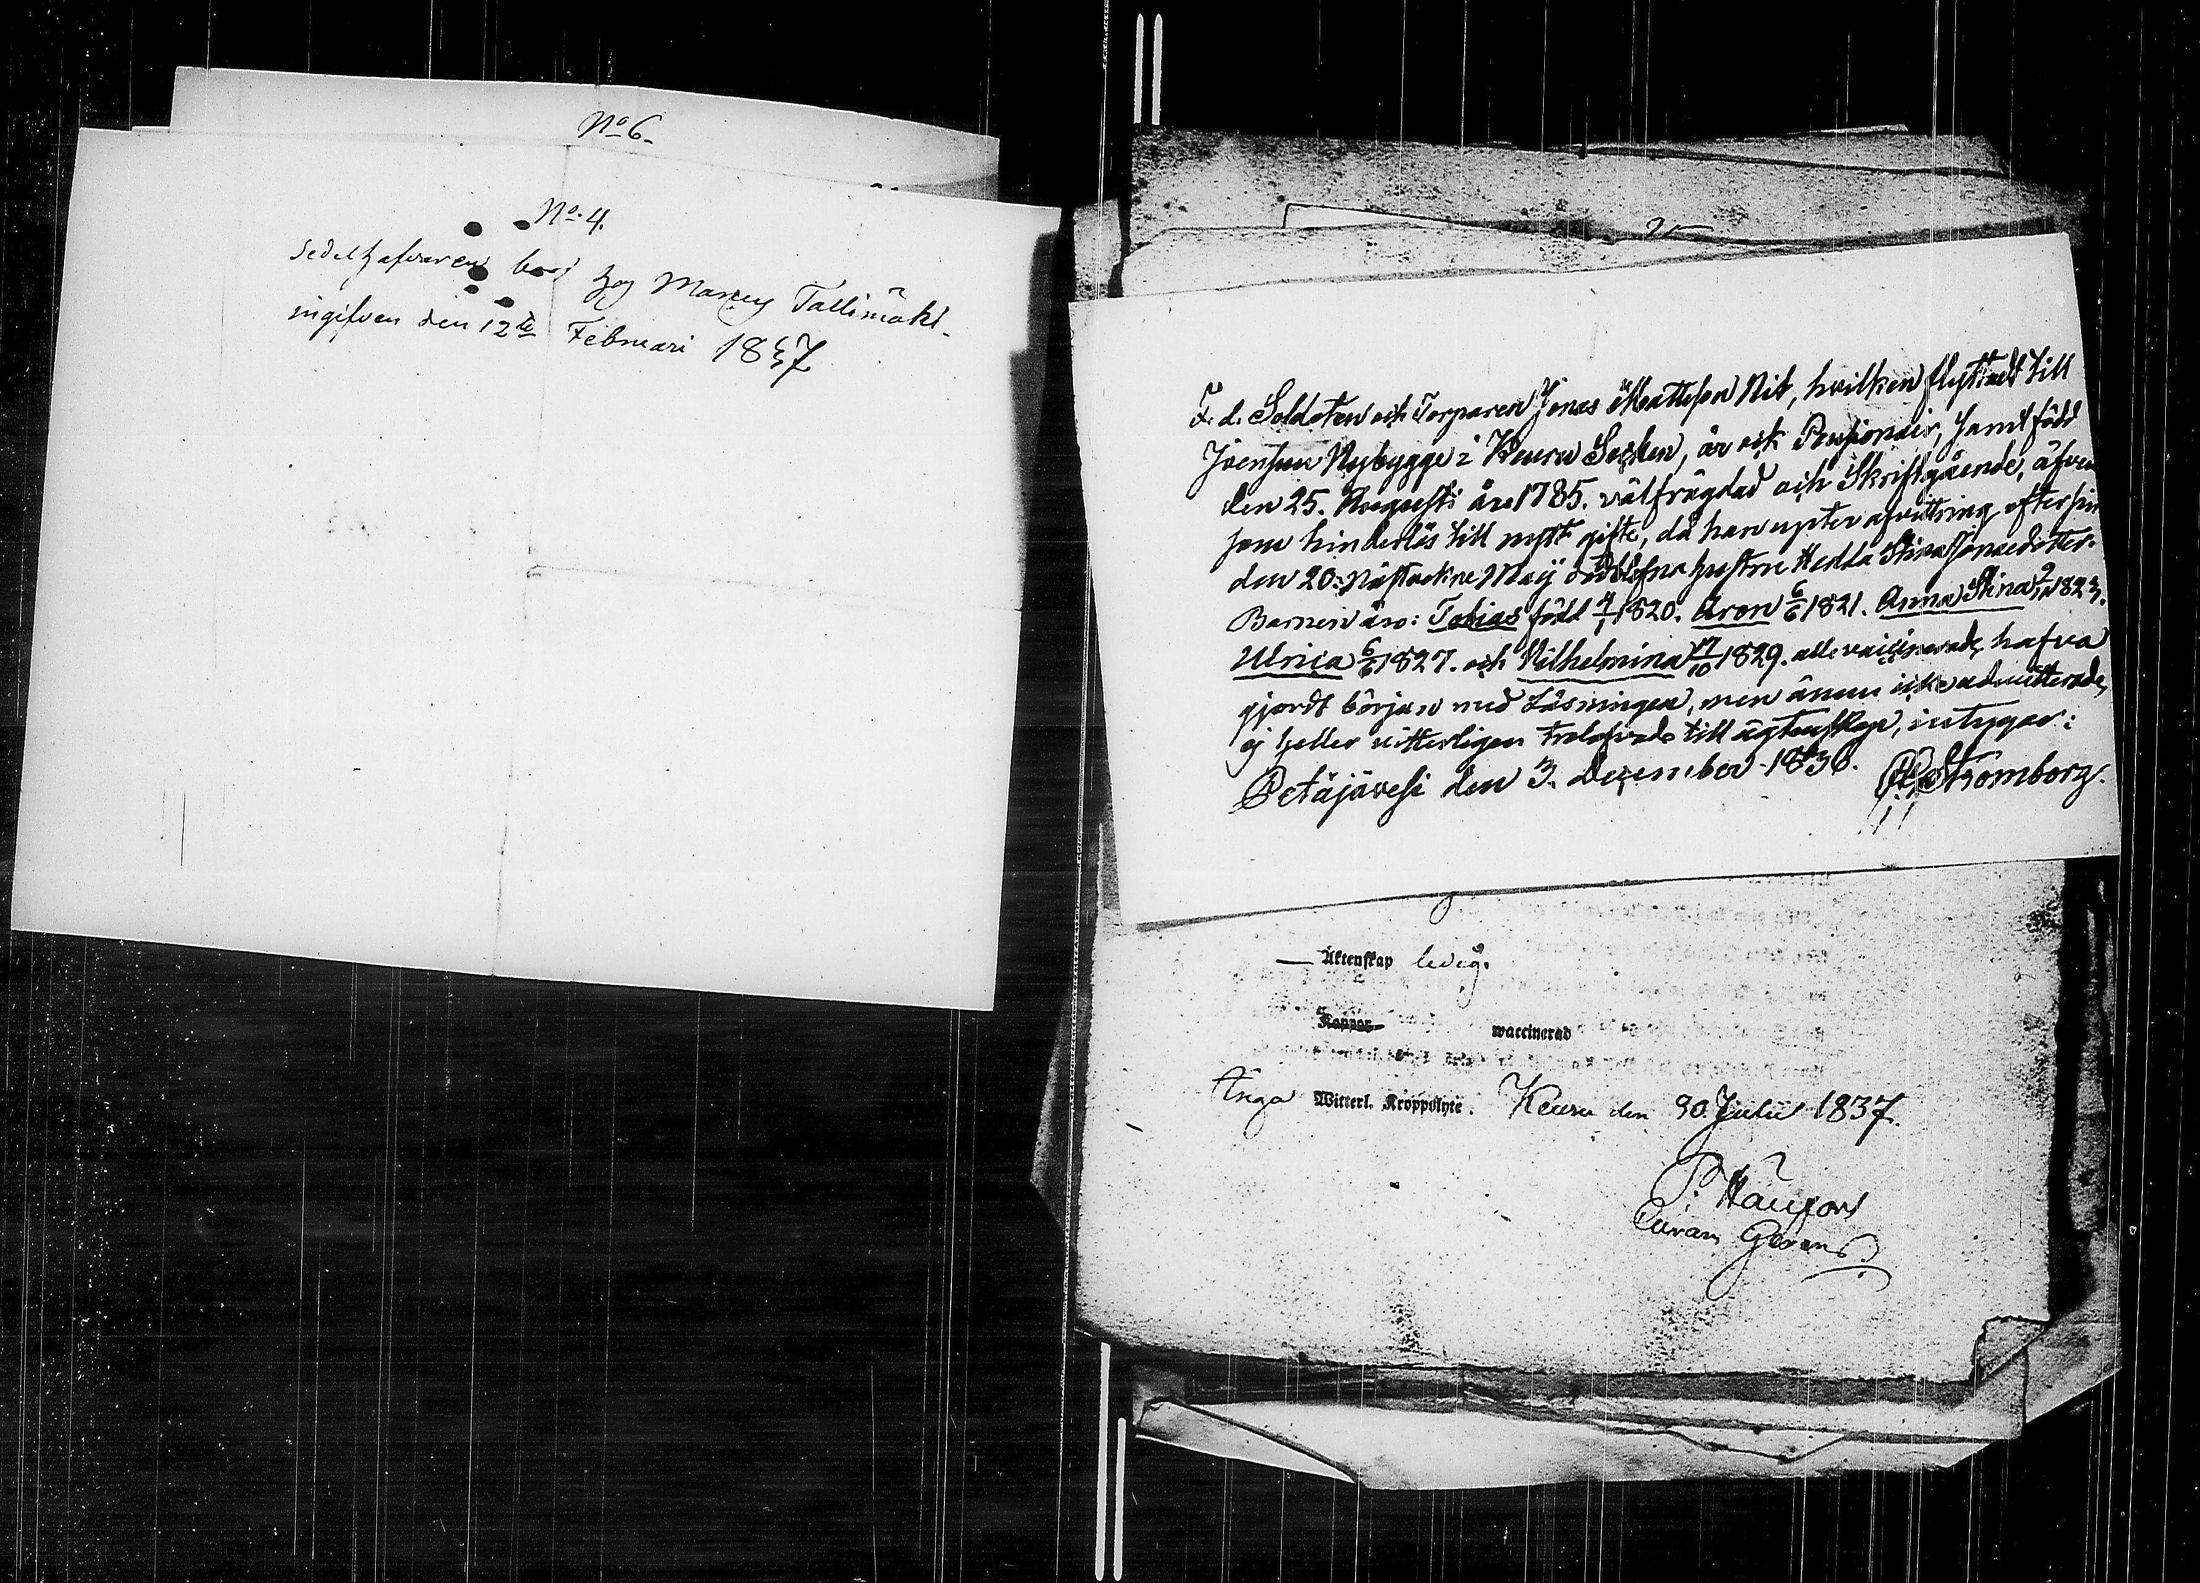 No 6.
No. 4.
Sedelhafvaren bor hos Maneg Tallimäki
ingifven den 12te Februari 1837
F. d. Soldaten och Torparen Jonas Mattsson Nit, hvilken flyttadt till
Joensuu Nybygge i Keuru Socken, är ock Pensionair, samt född
den 25. Augusti åre 1785. välfrägdad och Skriftgående, äfven
som hinderlös till nytt gifte, då han upter afvittring efter sin
den 20. nästvekne Maij dödblefna hustru Hedda Stina Jonaedotter.
Barnen äro: Tobias född 4/1 1820. Aron 6/6 1821. Anna Stina 1823.
Ulrica 6/6 1827. och Vilhelmina 17/10 1829. alle vaccinerade, hafva
gjordt början med Läsningen, men ännu icke admitterade,
ej heller vitterligen trolofvade till ägtenskap, intygar:
Petäjävesi den 3. December 1836. Strömborg.
Äktenskap ledig.
Koppor waccinerad
Inga Witterl. Kroppslyte. Keuru den 30 Julii 1837.
P.
Curam Gerens